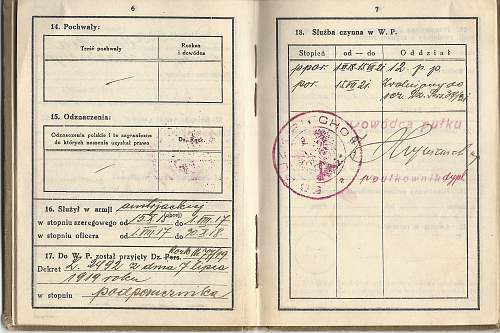 6
14. Pochwały:
Treść pochwały
Rozkaz
i dowódca
—
15. Odznaczenia:
Odznaczenia polskie i te zagraniczne
do których noszenia uzyskał prawo
Dz. Rozk.
—
16. Służył w armji austrjackiej
w stopniu szeregowego od 15.X.15 do 1.VIII.17
w stopniu oficera od 1.VIII.17 do 30.X.18
17. Do W. P. został przyjęty Dz. Pers.
Dekret L. 2492 z dnia 7 lipca
1919 roku
w stopniu podporucznika
7
18. Służba czynna w W. P.
Stopień
od — do
Oddział
ppor. 12 p. p.
por. 15.VII.21. Zwolniony do
rez.
Dowódca pułku
pułkownik dypl.